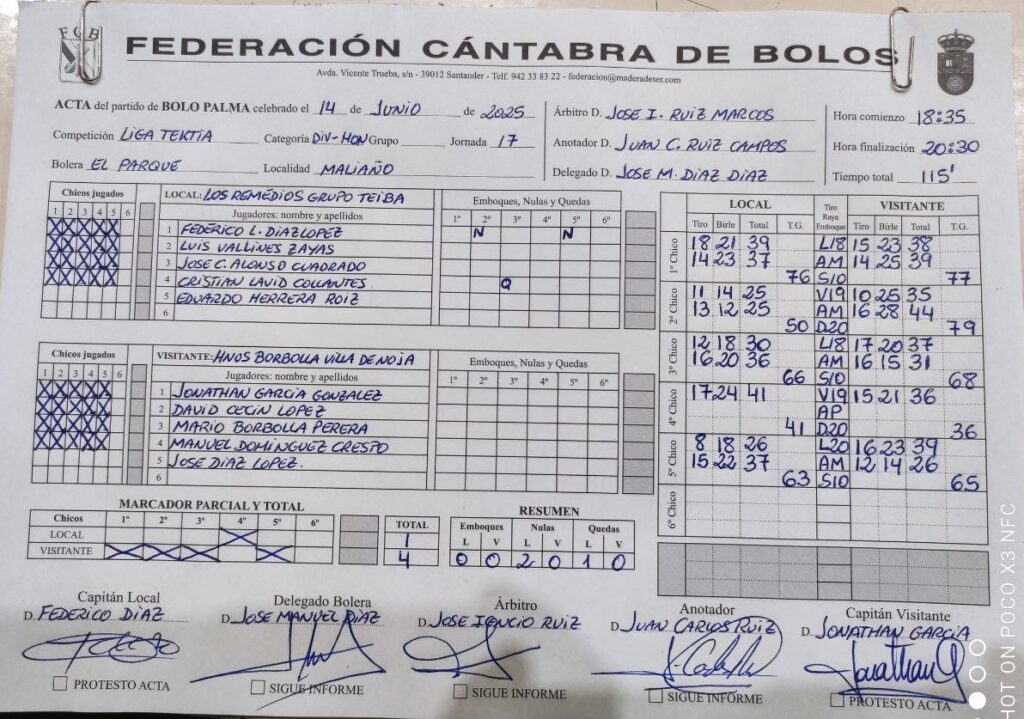 FCB
FEDERACIÓN CÁNTABRA DE BOLOS
Avda. Vicente Trueba, s/n - 39012 Santander - Telf. 942 33 83 22 - federacion@maderadeser.com
ACTA del partido de BOLO PALMA celebrado el 14 de JUNIO de 2025
Competición LIGA TEKTIA Categoría DIV-HON Grupo Jornada 17
Bolera EL PARQUE Localidad MALIAÑO
Árbitro D. JOSE I. RUIZ MARCOS
Anotador D. JUAN C. RUIZ CAMPOS
Delegado D. JOSE M. DIAZ DIAZ
Hora comienzo 18:35
Hora finalización 20:30
Tiempo total 115'
Chicos jugados LOCAL: LOS REMEDIOS GRUPO TEIBA Emboques, Nulas y Quedas
1 2 3 4 5 6 Jugadores: nombre y apellidos 1º 2º 3º 4º 5º 6º
1 FEDERICO L. DIAZ LOPEZ N N
2 LUIS VALLINES ZAYAS
3 JOSE C. ALONSO CUADRADO
4 CRISTIAN LAVID COLLANTES Q
5 EDUARDO HERRERA ROIZ
6
Chicos jugados VISITANTE: HNOS BORBOLLA VILLA DE NOJA Emboques, Nulas y Quedas
1 2 3 4 5 6 Jugadores: nombre y apellidos 1º 2º 3º 4º 5º 6º
1 JONATHAN GARCIA GONZALEZ
2 DAVID CECIN LOPEZ
3 MARIO BORBOLLA PERERA
4 MANUEL DOMINGUEZ CRESPO
5 JOSE DIAZ LOPEZ.
6
LOCAL Tiro Raya Emboque VISITANTE
Tiro Birle Total T.G. Tiro Birle Total T.G.
1º Chico 18 21 39 L18 15 23 38
14 23 37 AM 14 25 39
76 S10 77
2º Chico 11 14 25 V19 10 25 35
13 12 25 AM 16 28 44
50 D20 79
3º Chico 12 18 30 L18 17 20 37
16 20 36 AM 16 15 31
66 S10 68
4º Chico 17 24 41 V19 15 21 36
AP
41 D20 36
5º Chico 8 18 26 L20 16 23 39
15 22 37 AM 12 14 26
63 S10 65
6º Chico
MARCADOR PARCIAL Y TOTAL
Chicos 1º 2º 3º 4º 5º 6º TOTAL
LOCAL 1
VISITANTE 4
RESUMEN
Emboques Nulas Quedas
L V L V L V
0 0 2 0 1 0
Capitán Local
D. FEDERICO DIAZ
PROTESTO ACTA
Delegado Bolera
D. JOSE MANUEL DIAZ
SIGUE INFORME
Árbitro
D. JOSE IGNCIO RUIZ
SIGUE INFORME
Anotador
D. JUAN CARLOS RUIZ
SIGUE INFORME
Capitán Visitante
D. JONATHAN GARCIA
PROTESTO ACTA
SHOT ON POCO X3 NFC